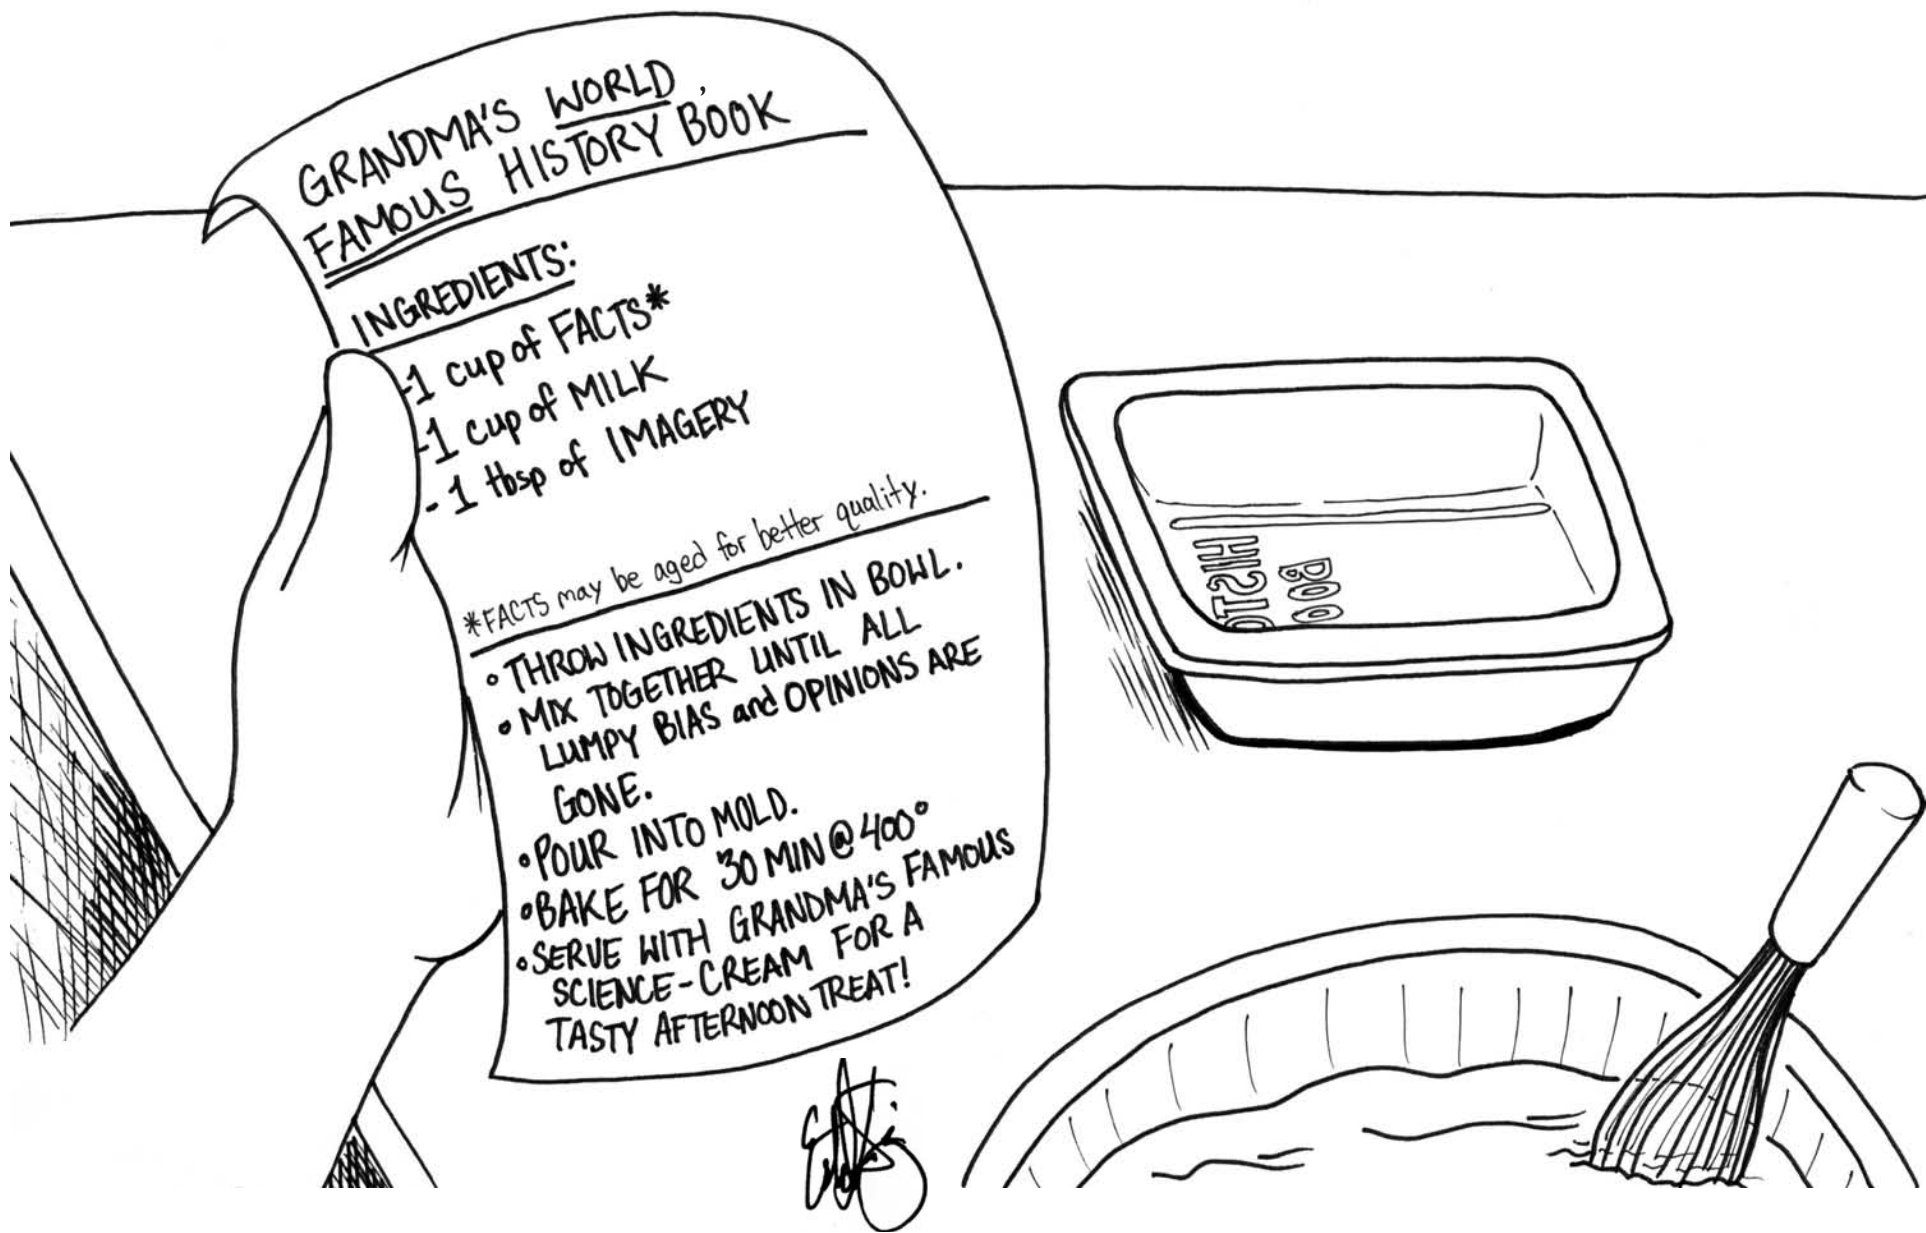 GRANDMA'S WORLD
FAMOUS HISTORY BOOK
INGREDIENTS:
-1 cup of FACTS*
-1 cup of MILK
-1 tbsp of IMAGERY
*FACTS may be aged for better quality.
• THROW INGREDIENTS IN BOWL.
• MIX TOGETHER UNTIL ALL
LUMPY BIAS and OPINIONS ARE
GONE.
• POUR INTO MOLD.
• BAKE FOR 30 MIN @ 400°
• SERVE WITH GRANDMA'S FAMOUS
SCIENCE-CREAM FOR A
TASTY AFTERNOON TREAT!
HISTO
BOO